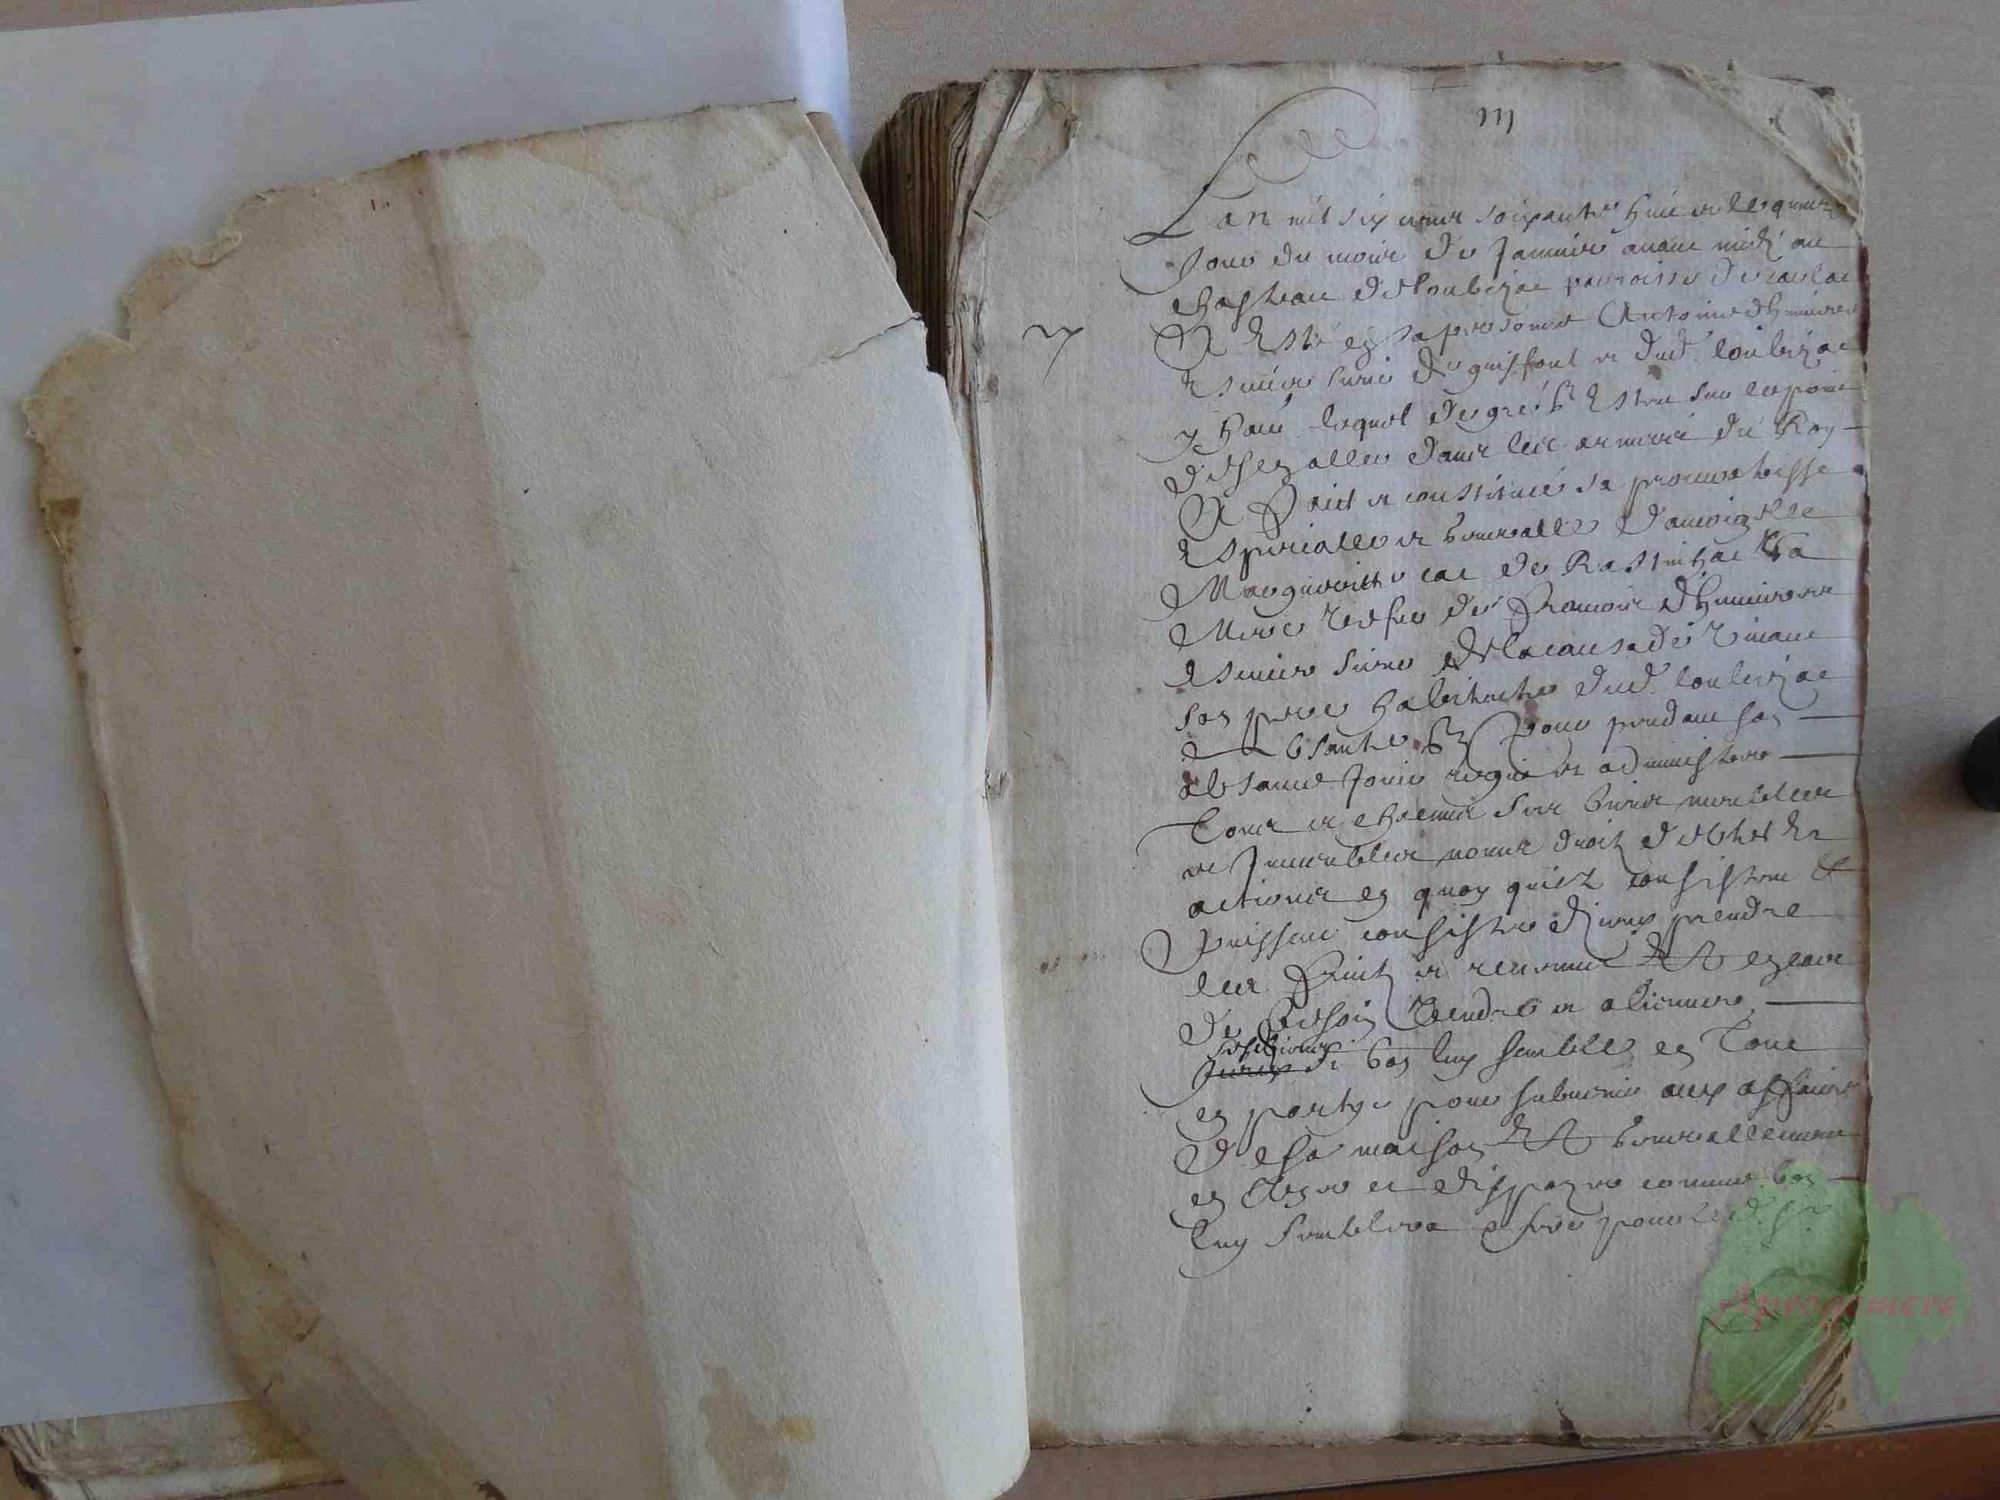 iij
Lan mil six cens soixante huic et le quinz
Jour du mois de Janvier avant midi au
chasteau de Loubejac parroisse de
A Esté en sa personne Antoine dhumieres
Escuier sieur de et dud. Loubejac
y habi. lequel de gré Estan sur le poinc
de sen aller dans les armées du Roy
A faict et constitué sa procuratrisse
Especialle et generalle damoizelle
Margueritte de Rastinhac sa
Mere vesfve de François dhumieres
Escuier sieur de vivant
son pere habitante dud. Loubejac
absante pour pendant son
absance Jouir regir et administrer
tous et chacuns ses biens meubles
et Immeubles noms droitz debtes et
actions en quoy quilz consistent et
puissent consister diceux prendre
les fruitz et revenus Et en cas
de besoin vendre et aliener
si bon luy semble en tout
en partye pour subvenir aux affaires
de sa maison Et generallement
en et dispozer comme bon
luy semblera pour led. sr
Aprogemere